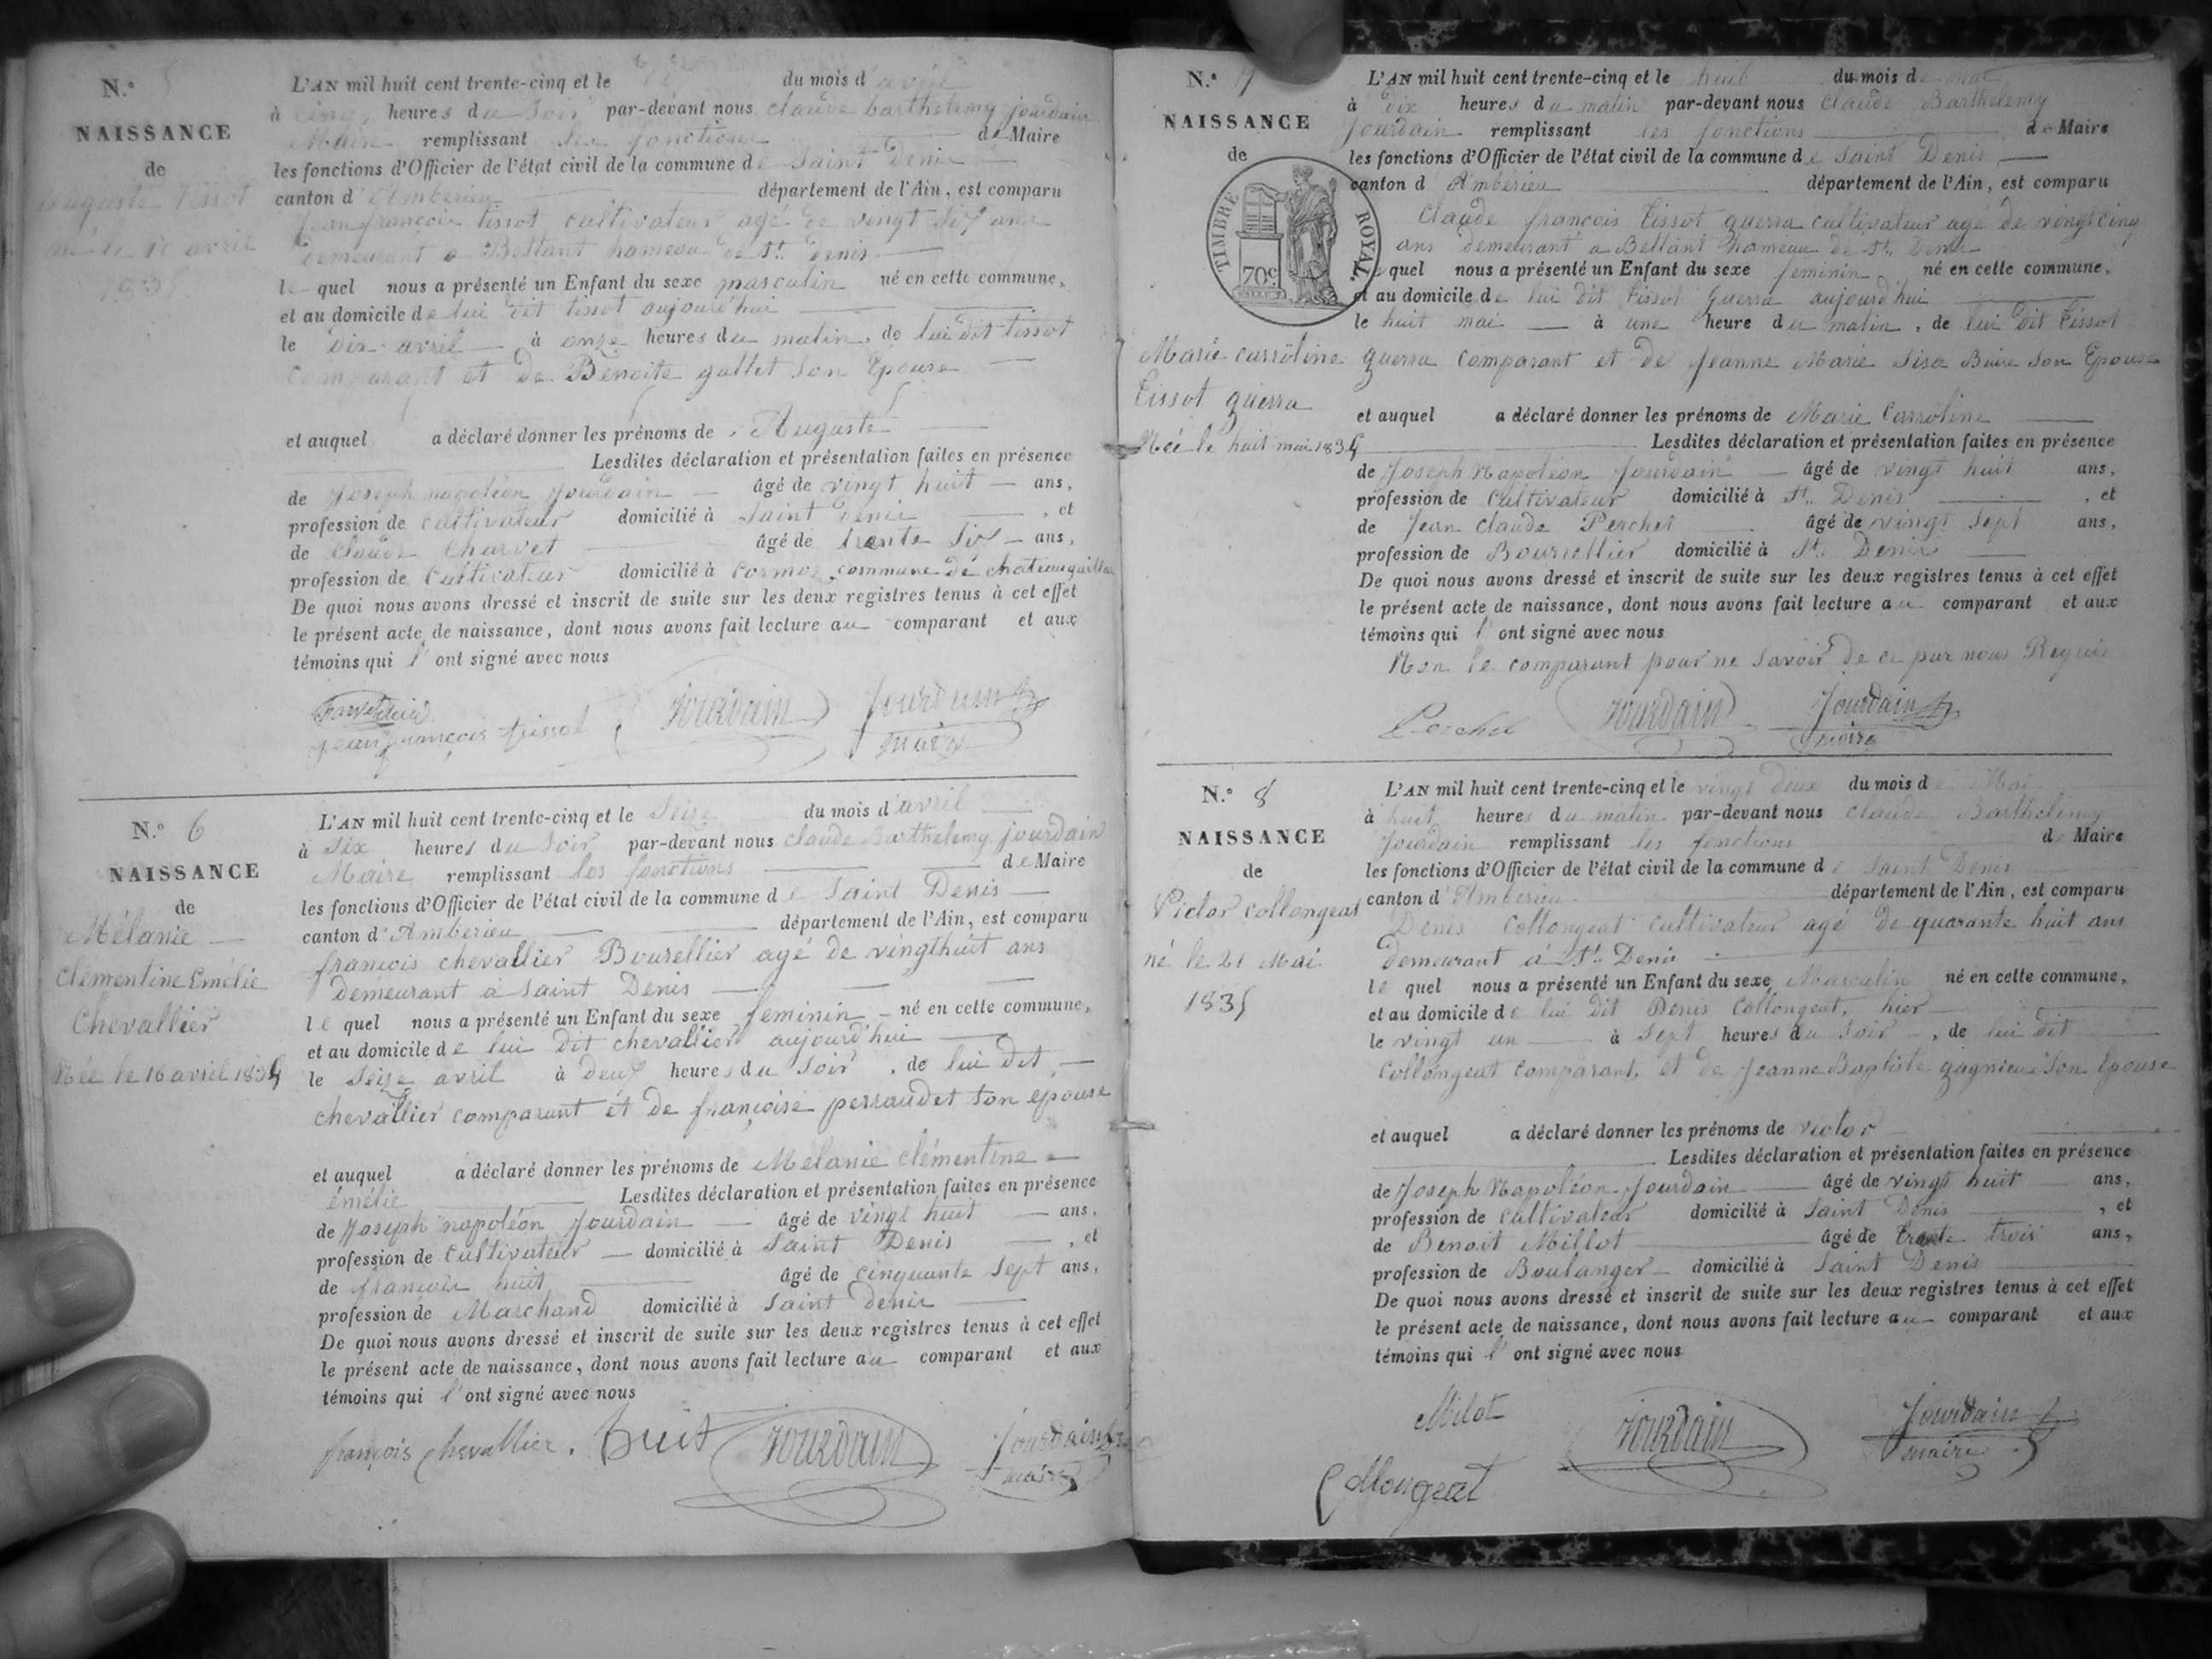 N.° 5
NAISSANCE
de
auguste tissot
né le 10 avril
1835
L'AN mil huit cent trente-cinq et le du mois d'avril
à cinq heures du Soir par-devant nous claude barthelemy jourdain
Maire remplissant les fonctions de Maire
les fonctions d'Officier de l'état civil de la commune de Saint Denis
canton d'Amberieu département de l'Ain, est comparu
Jean françois tissot cultivateur agé de vingt six ans
demeurant a Bettant hameau de St. Denis
le quel nous a présenté un Enfant du sexe masculin né en cette commune,
et au domicile de lui dit tissot aujourd'hui
le dix avril à onze heures du matin, de lui dit tissot
comparant et de Benoite gallet son Epouse
et auquel a déclaré donner les prénoms de Auguste
Lesdites déclaration et présentation faites en présence
de Joseph napoléon Jourdain âgé de vingt huit ans,
profession de cultivateur domicilié à Saint Denis, et
de Claude Charvet âgé de trente Six ans,
profession de Cultivateur domicilié à Cormoz, commune de chateaugaillard
De quoi nous avons dressé et inscrit de suite sur les deux registres tenus à cet effet
le présent acte de naissance, dont nous avons fait lecture au comparant et aux
témoins qui l'ont signé avec nous
jean françois tissot Jourdain Jourdain
maire
N.° 6
NAISSANCE
de
Mélanie
clémentine Emélie
Chevallier
Née le 16 avril 1835
L'AN mil huit cent trente-cinq et le Seize du mois d'avril
à Six heures du Soir par-devant nous claude Barthelemy jourdain
Maire remplissant les fonctions de Maire
les fonctions d'Officier de l'état civil de la commune de Saint Denis
canton d'Amberieu département de l'Ain, est comparu
françois chevallier Bourellier agé de vingthuit ans
demeurant a Saint Denis
le quel nous a présenté un Enfant du sexe feminin né en cette commune,
et au domicile de lui dit chevallier aujourd'hui
le Seize avril à deux heures du Soir, de lui dit
chevallier comparant et de françoise perraudet son epouse
et auquel a déclaré donner les prénoms de Mélanie clémentine
émélie Lesdites déclaration et présentation faites en présence
de Joseph napoléon Jourdain âgé de vingt huit ans,
profession de Cultivateur domicilié à Saint Denis, et
de françois huit âgé de cinquante Sept ans,
profession de Marchand domicilié à Saint denis
De quoi nous avons dressé et inscrit de suite sur les deux registres tenus à cet effet
le présent acte de naissance, dont nous avons fait lecture au comparant et aux
témoins qui l'ont signé avec nous
françois chevallier. huit Jourdain Jourdain
maire
N.° 7
NAISSANCE
de
TIMBRE ROYAL.
70c
Marie carroline
tissot guerra
Née le huit mai 1835
L'AN mil huit cent trente-cinq et le huit du mois de mai
à dix heures du matin par-devant nous Claude Barthelemy
Jourdain remplissant les fonctions de Maire
les fonctions d'Officier de l'état civil de la commune de Saint Denis
canton d'Ambérieu département de l'Ain, est comparu
Claude françois tissot guerra cultivateur agé de vingtcinq
ans demeurant a Bettant hameau de St. Denis
le quel nous a présenté un Enfant du sexe feminin né en cette commune,
et au domicile de lui dit tissot guerra aujourd'hui
le huit mai à une heure du matin, de lui dit tissot
guerra comparant et de Jeanne Marie Buire son Epouse
et auquel a déclaré donner les prénoms de Marie Carroline
Lesdites déclaration et présentation faites en présence
de Joseph Napoléon Jourdain âgé de vingt huit ans,
profession de Cultivateur domicilié à St. Denis, et
de Jean Claude Perchet âgé de vingt Sept ans,
profession de Bourrellier domicilié à St. Denis
De quoi nous avons dressé et inscrit de suite sur les deux registres tenus à cet effet
le présent acte de naissance, dont nous avons fait lecture au comparant et aux
témoins qui l'ont signé avec nous
Non le comparant pour ne Savoir de ce par nous Requis
Perchet Jourdain Jourdain
maire
N.° 8
NAISSANCE
de
Victor Collongeat
né le 21 Mai
1835
L'AN mil huit cent trente-cinq et le vingt deux du mois de Mai
à huit heures du matin par-devant nous Claude Barthelemy
Jourdain remplissant les fonctions de Maire
les fonctions d'Officier de l'état civil de la commune de Saint Denis
canton d'Ambérieu département de l'Ain, est comparu
Denis Collongeat Cultivateur agé de quarante huit ans
demeurant à St. Denis
le quel nous a présenté un Enfant du sexe Masculin né en cette commune,
et au domicile de lui dit Denis Collongeat, hier
le vingt un à Sept heures du Soir, de lui dit
Collongeat comparant, et de Jeanne Baptiste gagnieu Son Epouse
et auquel a déclaré donner les prénoms de victor
Lesdites déclaration et présentation faites en présence
de Joseph Napoléon Jourdain âgé de vingt huit ans,
profession de Cultivateur domicilié à Saint Denis, et
de Benoit Millot âgé de trente trois ans,
profession de Boulanger domicilié à Saint Denis
De quoi nous avons dressé et inscrit de suite sur les deux registres tenus à cet effet
le présent acte de naissance, dont nous avons fait lecture au comparant et aux
témoins qui l'ont signé avec nous
Milot Jourdain Jourdain
maire
Collongeat